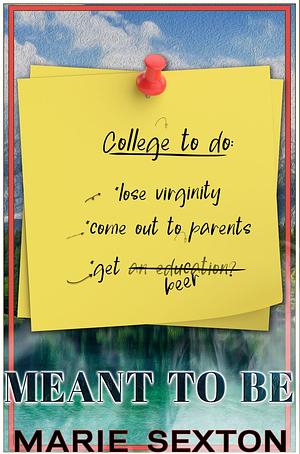 College to do:
*lose virginity
*come out to parents
*get an education?
beer
MEANT TO BE
MARIE SEXTON